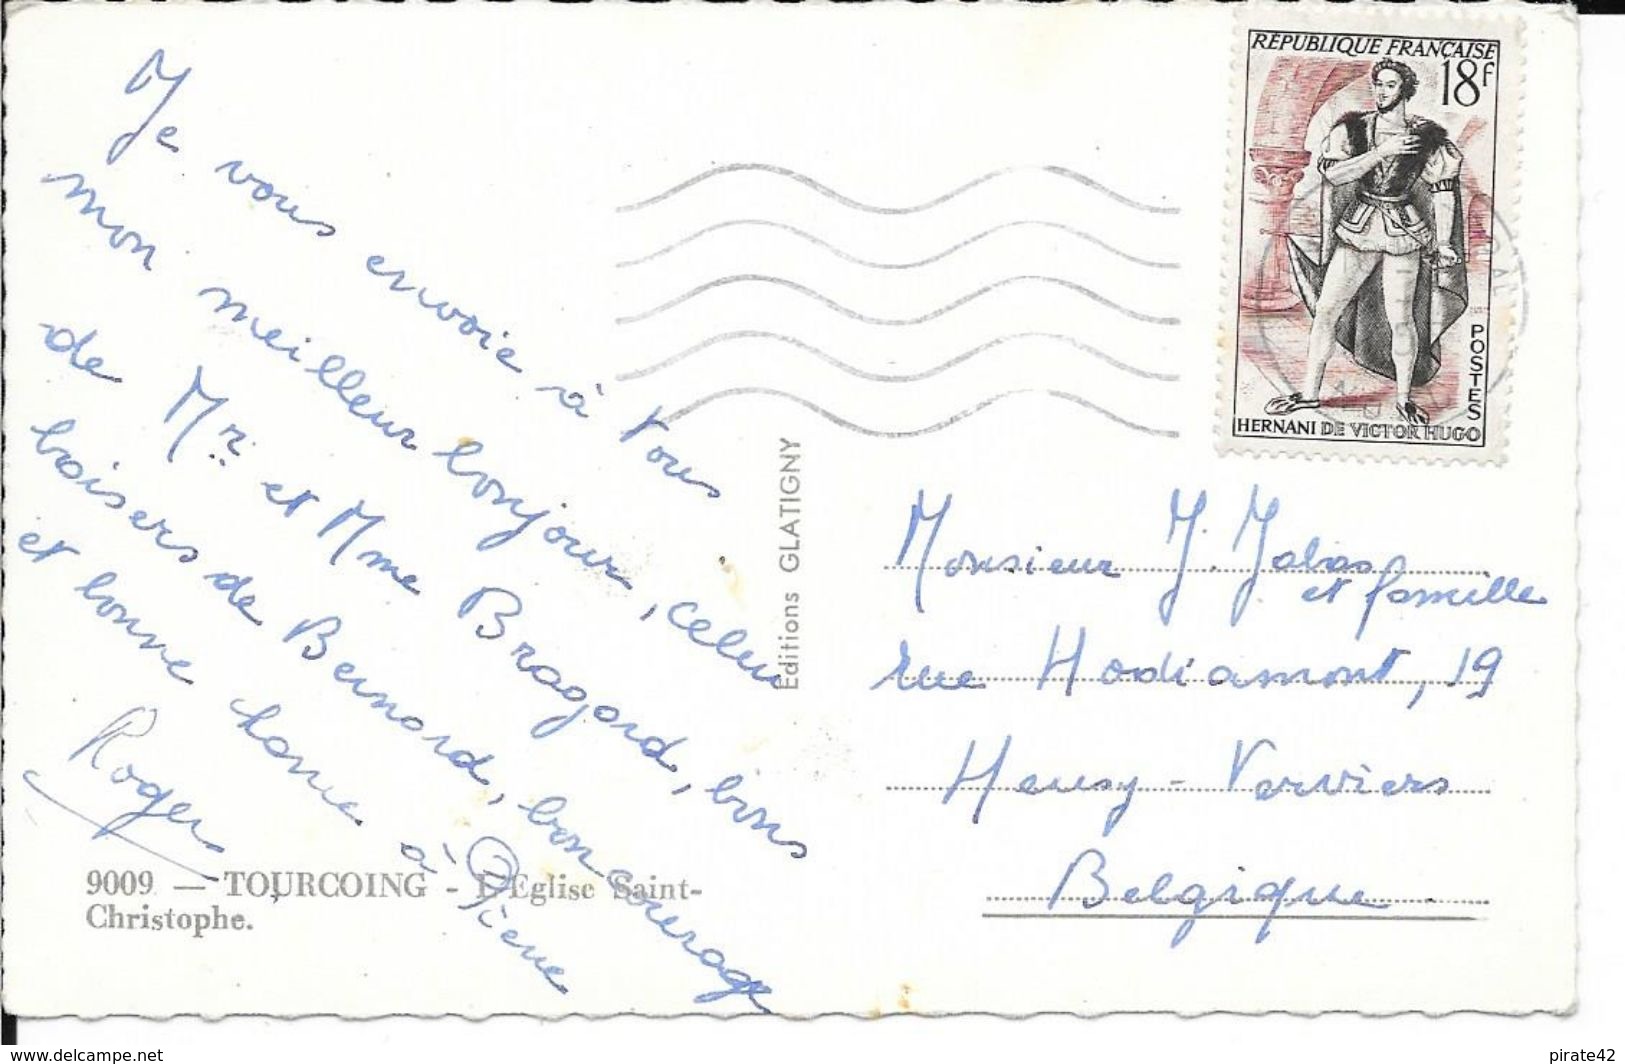 Je vous envoie à tous
mon meilleur bonjour, celui
de Mr. et Mme Bragard, bons
baisers de Bernard, bon courage
et bonne chance à Pierre
Roger
9009 — TOURCOING - L'Eglise Saint-
Christophe.
Editions GLATIGNY
RÉPUBLIQUE FRANÇAISE
18F
POSTES
HERNANI DE VICTOR HUGO
Monsieur J. Jabas
et famille
rue Hodiamont, 19
Heusy - Verviers
Belgique.
www.delcampe.net
pirate42